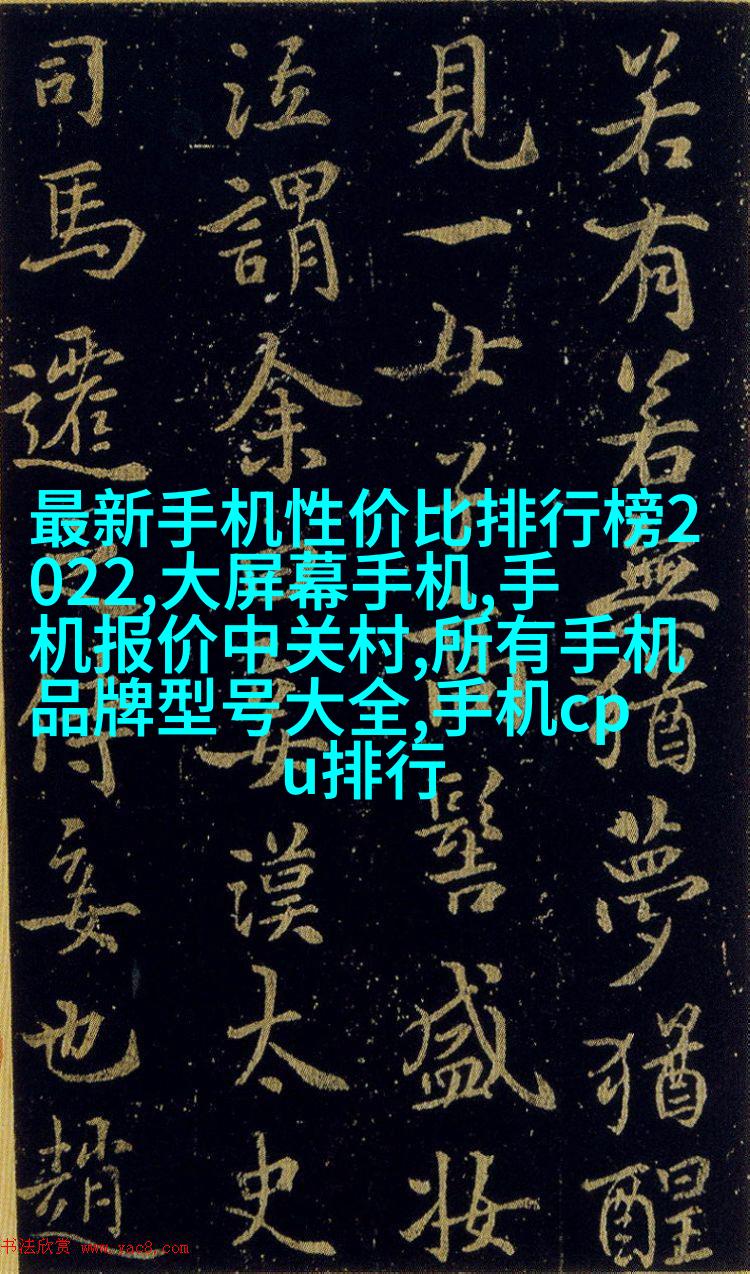 若有若無猶夢猶醒
見一女子高髻盛妝
泣謂余妾漢太史
司馬遷之侍妾也趙
最新手机性价比排行榜2
022,大屏幕手机,手
机报价中关村,所有手机
品牌型号大全,手机cp
u排行
书法欣赏 www.yac8.com